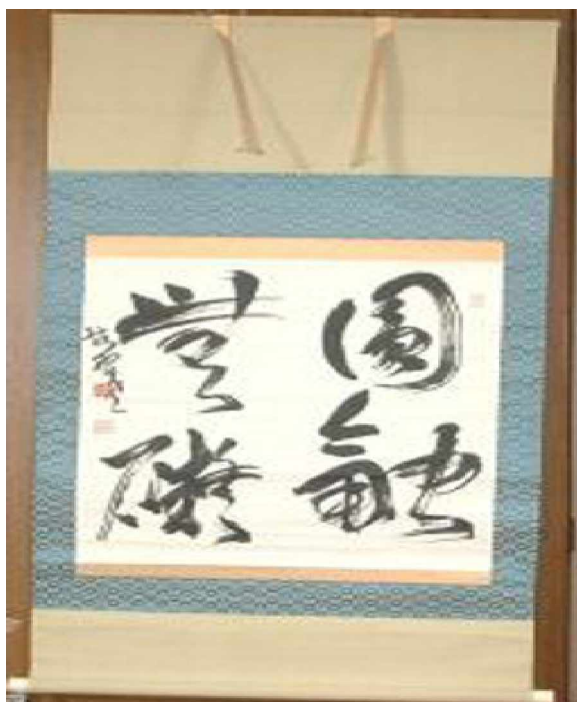 圓融
無礙